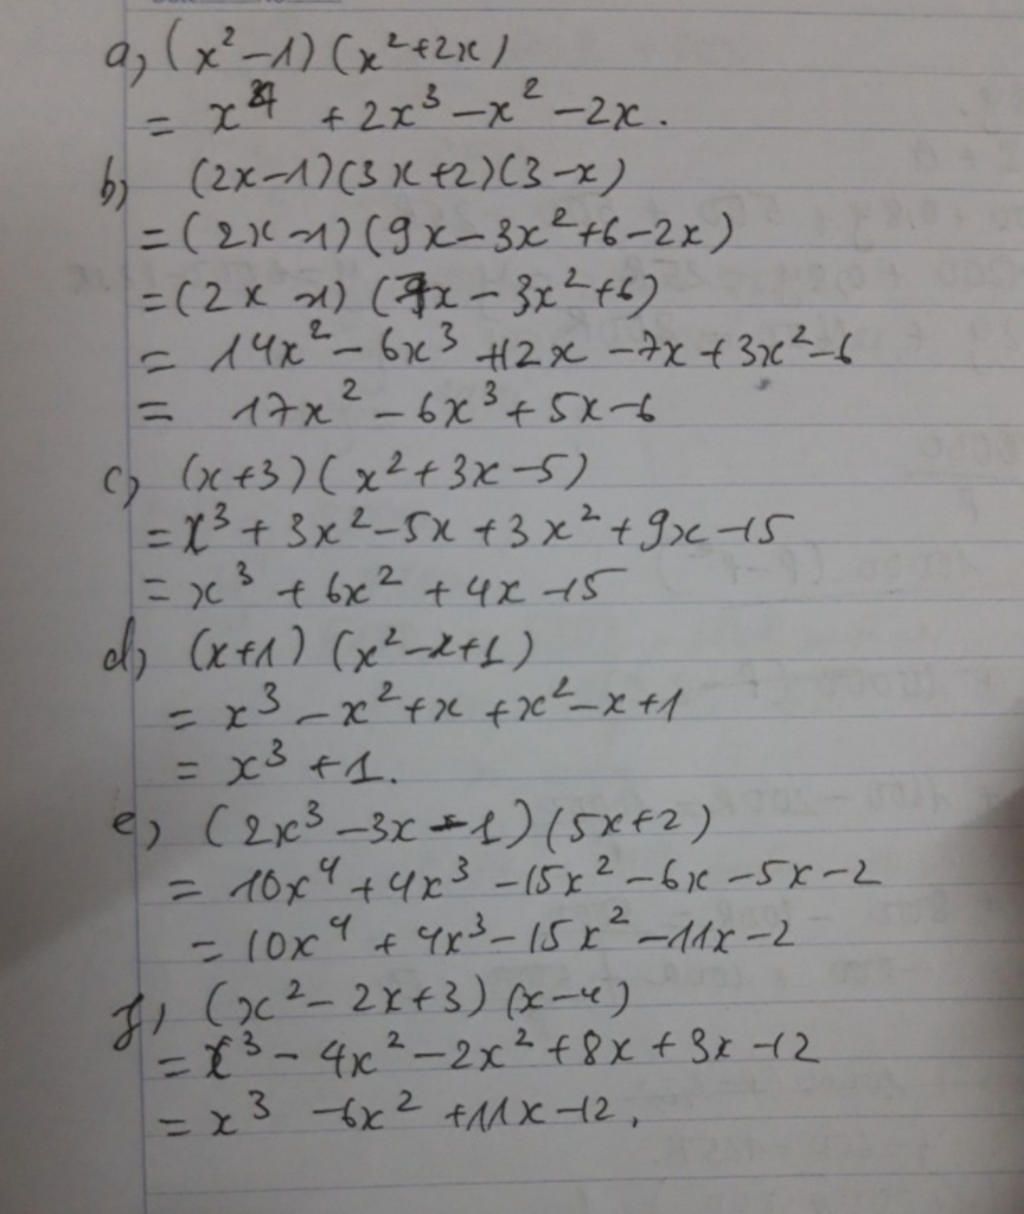 a, (x² - 1) (x² + 2x)
= x⁴ + 2x³ - x² - 2x.
b) (2x - 1)(3x + 2)(3 - x)
= (2x - 1)(9x - 3x² + 6 - 2x)
= (2x - 1) (7x - 3x² + 6)
= 14x² - 6x³ + 12x - 7x + 3x² - 6
= 17x² - 6x³ + 5x - 6
c) (x + 3)(x² + 3x - 5)
= x³ + 3x² - 5x + 3x² + 9x - 15
= x³ + 6x² + 4x - 15
d, (x + 1) (x² - x + 1)
= x³ - x² + x + x² - x + 1
= x³ + 1.
e, (2x³ - 3x - 1)(5x + 2)
= 10x⁴ + 4x³ - 15x² - 6x - 5x - 2
= 10x⁴ + 4x³ - 15x² - 11x - 2
f, (x² - 2x + 3) (x - 4)
= x³ - 4x² - 2x² + 8x + 3x - 12
= x³ - 6x² + 11x - 12,